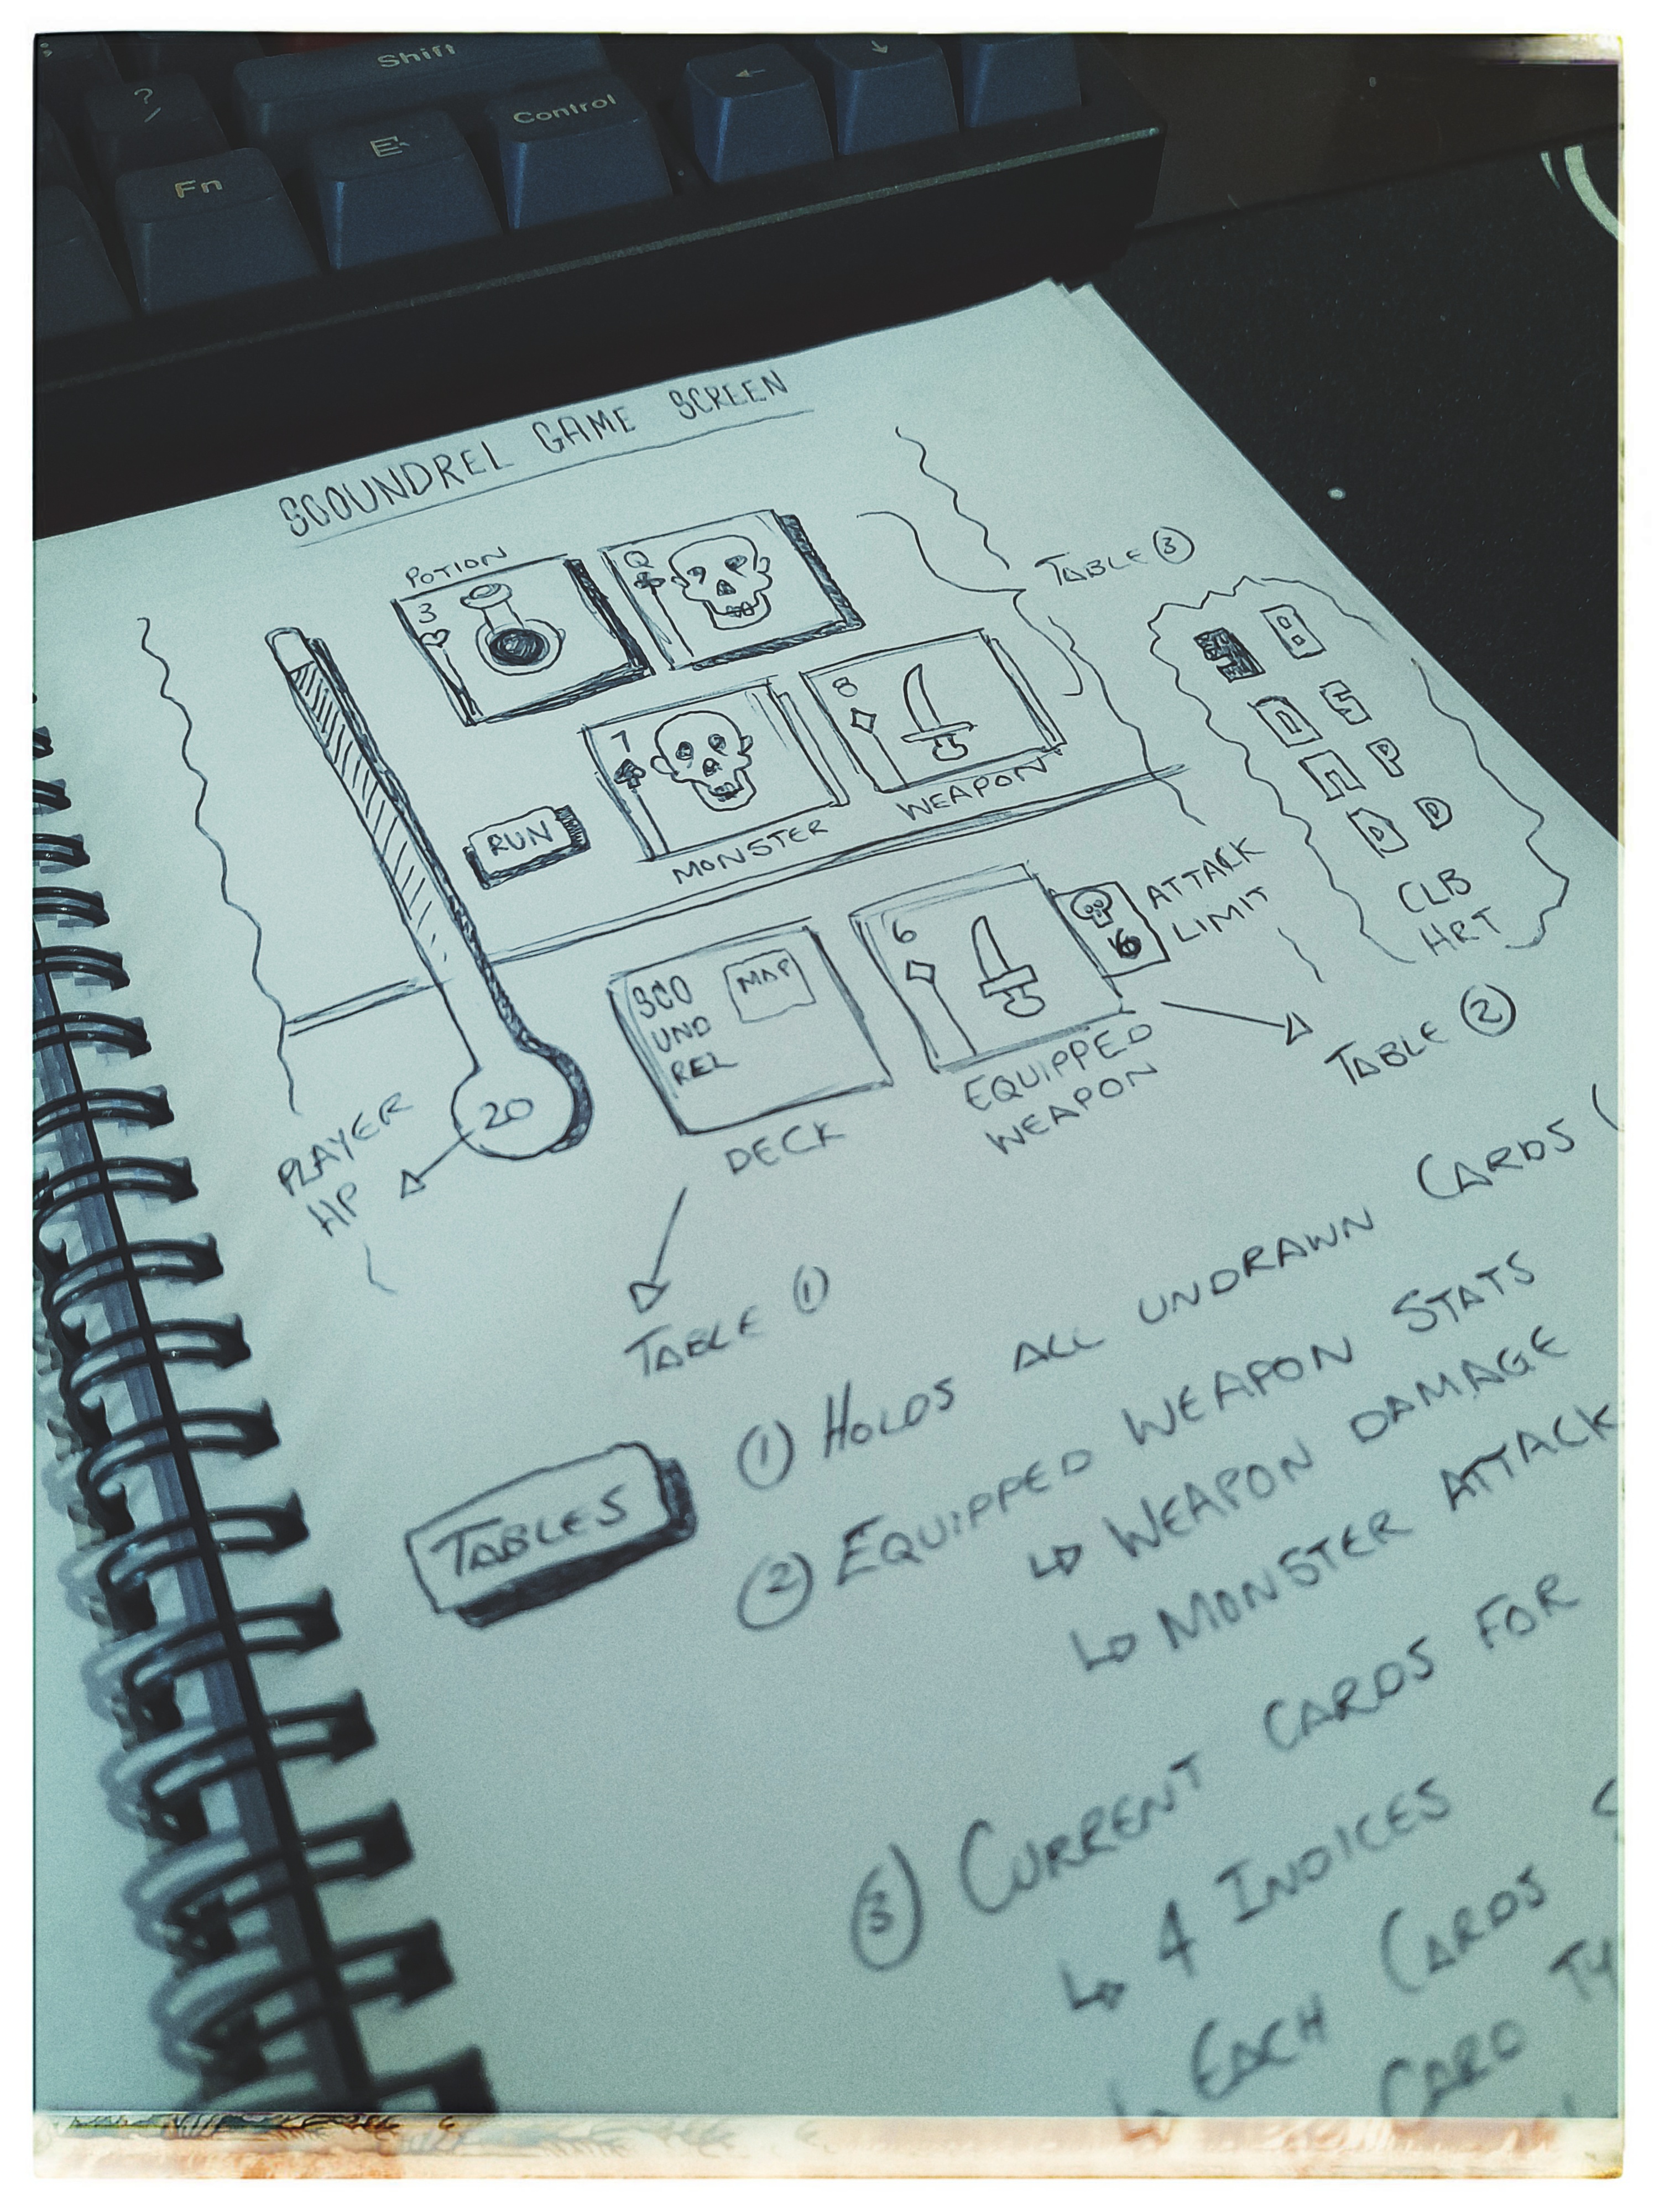 Shift
?
/
Control
Fn
SCOUNDREL GAME SCREEN
POTION
3
Q
TABLE ③
8
7
WEAPON
MONSTER
RUN
CLB
HRT
ATTACK
LIMIT
6
SCO
UND
REL
MAP
EQUIPPED
WEAPON
TABLE ②
20
PLAYER
HP
DECK
TABLE ①
TABLES
① HOLDS ALL UNDRAWN CARDS (
② EQUIPPED WEAPON STATS
↳ WEAPON DAMAGE
↳ MONSTER ATTACK
③ CURRENT CARDS FOR
↳ 4 INDICES
↳ EACH CARDS
CARD TY